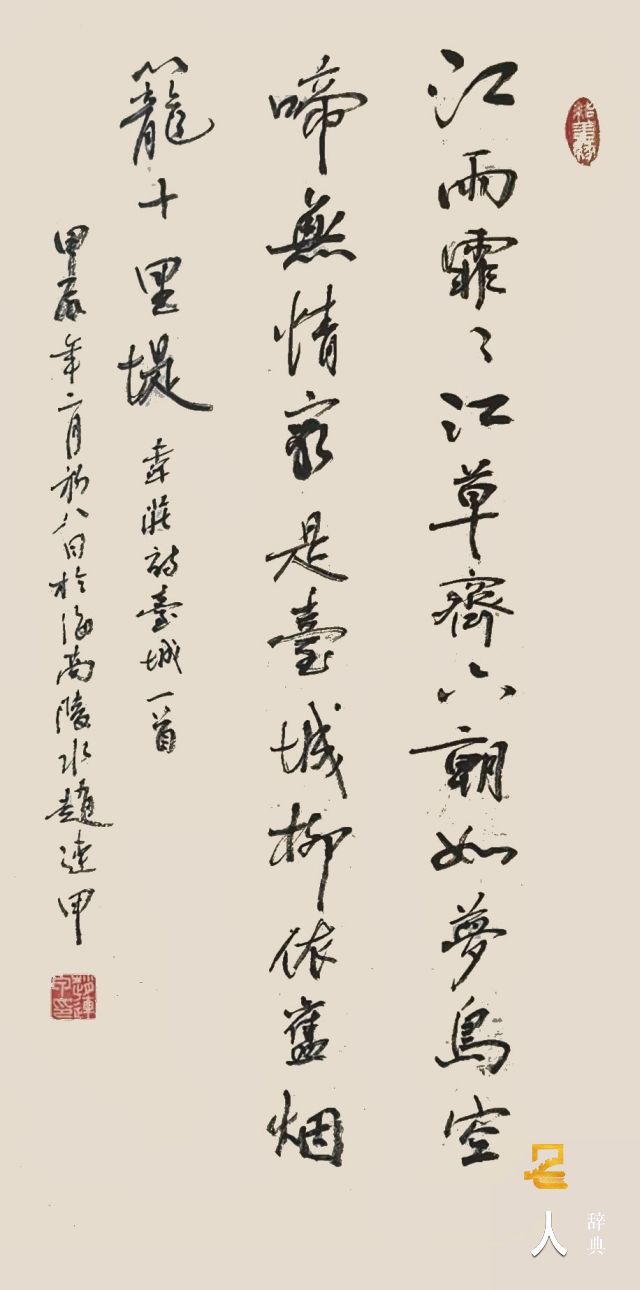 江雨霏〻江草齊六朝如夢鳥空
啼無情最是臺城柳依舊烟
籠十里堤
韋莊詩臺城一首
甲辰年二月初八日於海南陵水趙連甲
趙連甲印
名人
辞典